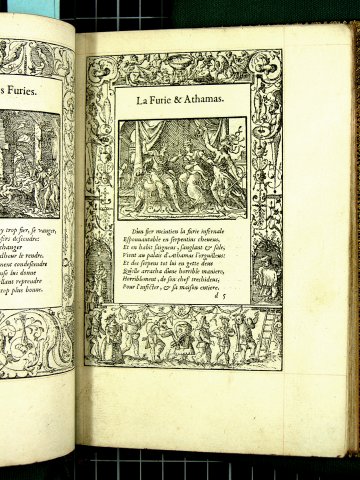 s Furies.
y trop fier, se vanger,
sirs descendre:
changer
lheur le rendre.
ment condescendre
use lui donne
llant reprendre
trop plus bonne.
La Furie & Athamas.
D'un fier incitatiō la furie infernale
Espouuantable en serpentins cheueus,
Et en habit saigneus, sanglant & sale,
Vient au palais d'Athamas l'orguilleus:
Et des serpens tot lui en gette deus
Qu'elle arracha d'une horrible maniere,
Horriblement, de son chef trechideus,
Pour l'infecter, & sa maison entiere.
d 5